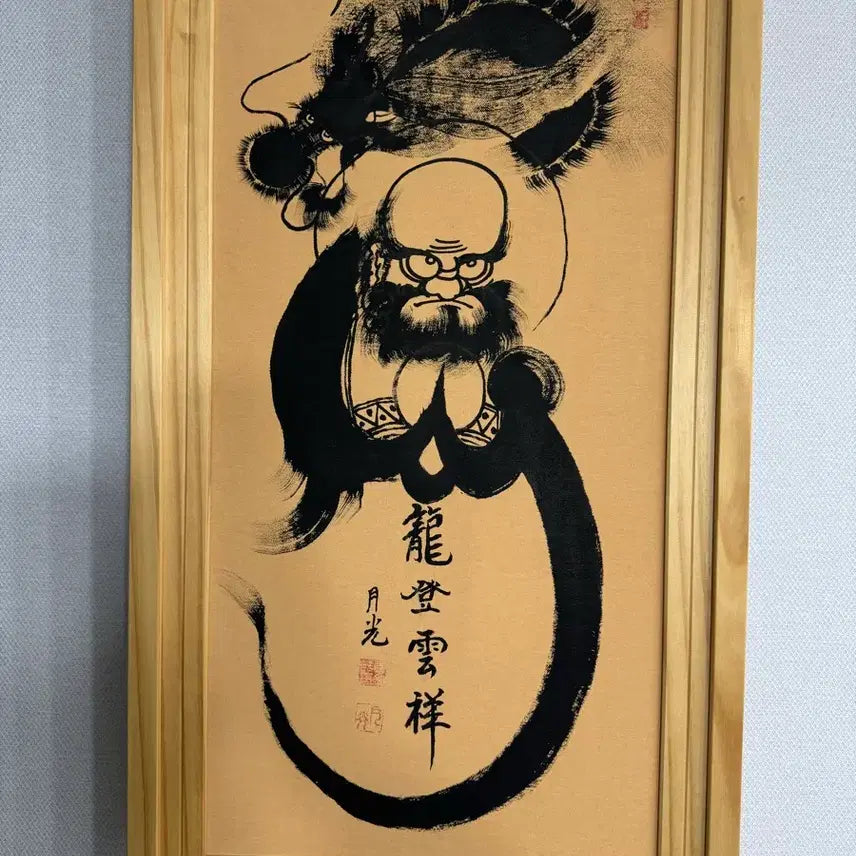 龍登雲祥
月光